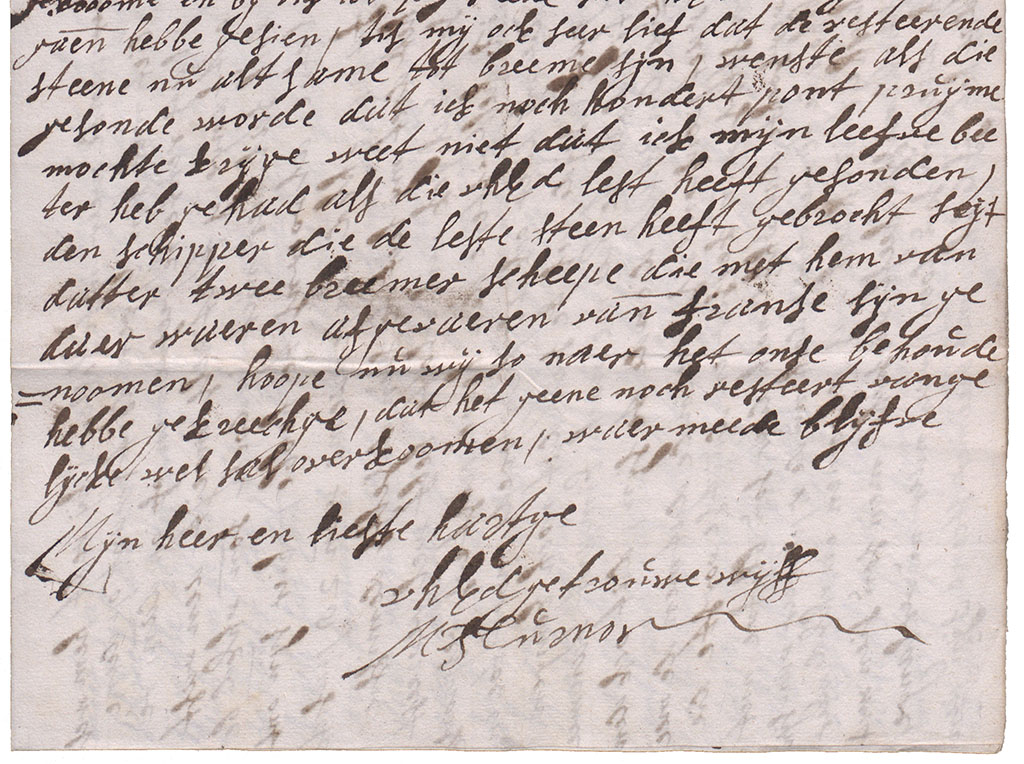 hebbe gesien, tis mij ock seer lief dat de resteerende
steene nu altsame tot breeme sijn, wenste als die
gesonde worde dat ick noch hondert pont pruijme
mochte krijge weet niet dat ick mijn leefve bee
ter heb gehad als die uhEd lest heeft gesonden,
den schipper die de leste steen heeft gebrocht seijt
datter twee breemer scheepe die met hem van
daer waeren afgevaeren van franse sijn ge
=noomen, hoope nu wij so naer het onse behoude
hebbe gekreechge, dat het geene noch resteert vange
lijcke wel sal overkoomen, waer meede blijfve
Mijn heer en liefste hartge
uhEd getrouwe wijff
M Turnor